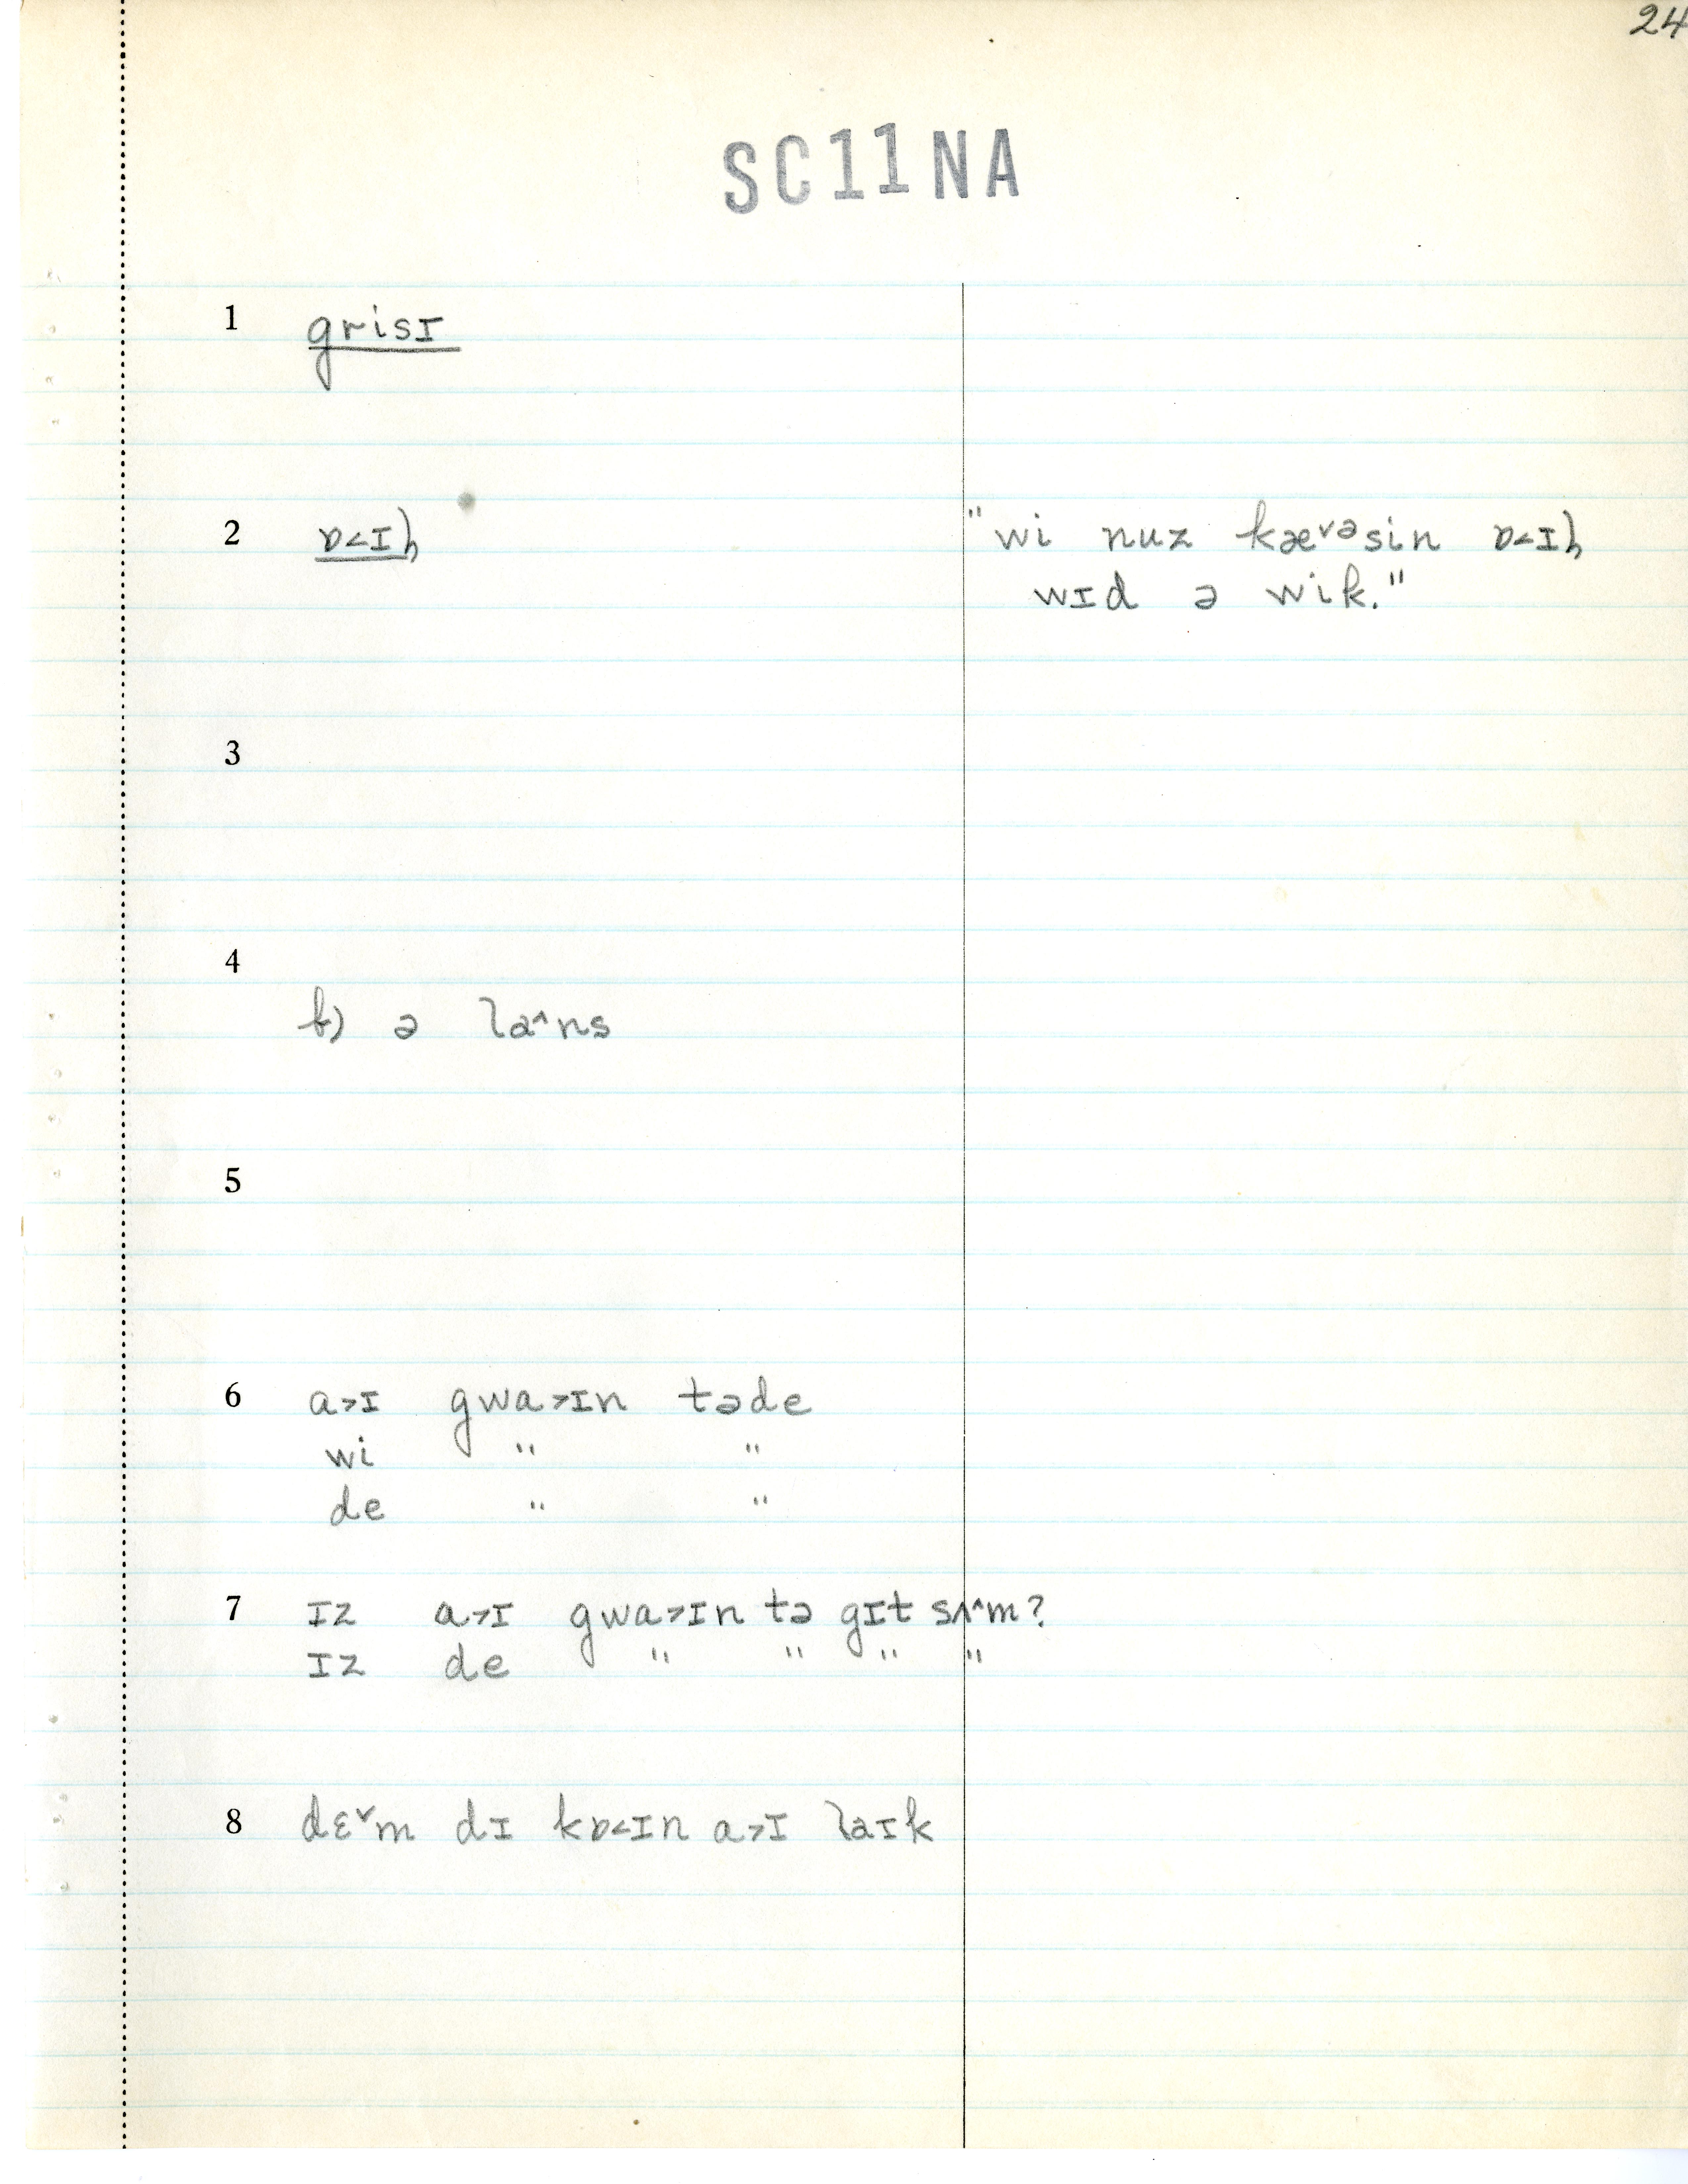 24
SC11NA
1 grisɪ
2 ɒ˂ɪḷ "wi nuz kæᵛəsin ɒ˂ɪḷ
wɪd ə wik."
3
4
b) ə laˆns
5
6 a˃ɪ gwa˃ɪn təde
wi " "
de " "
7 ɪz a˃ɪ gwa˃ɪn tə gɪt sʌˆm?
ɪz de " " " "
8 dɛˇm dɪ kɒ˂ɪn a˃ɪ laɪk